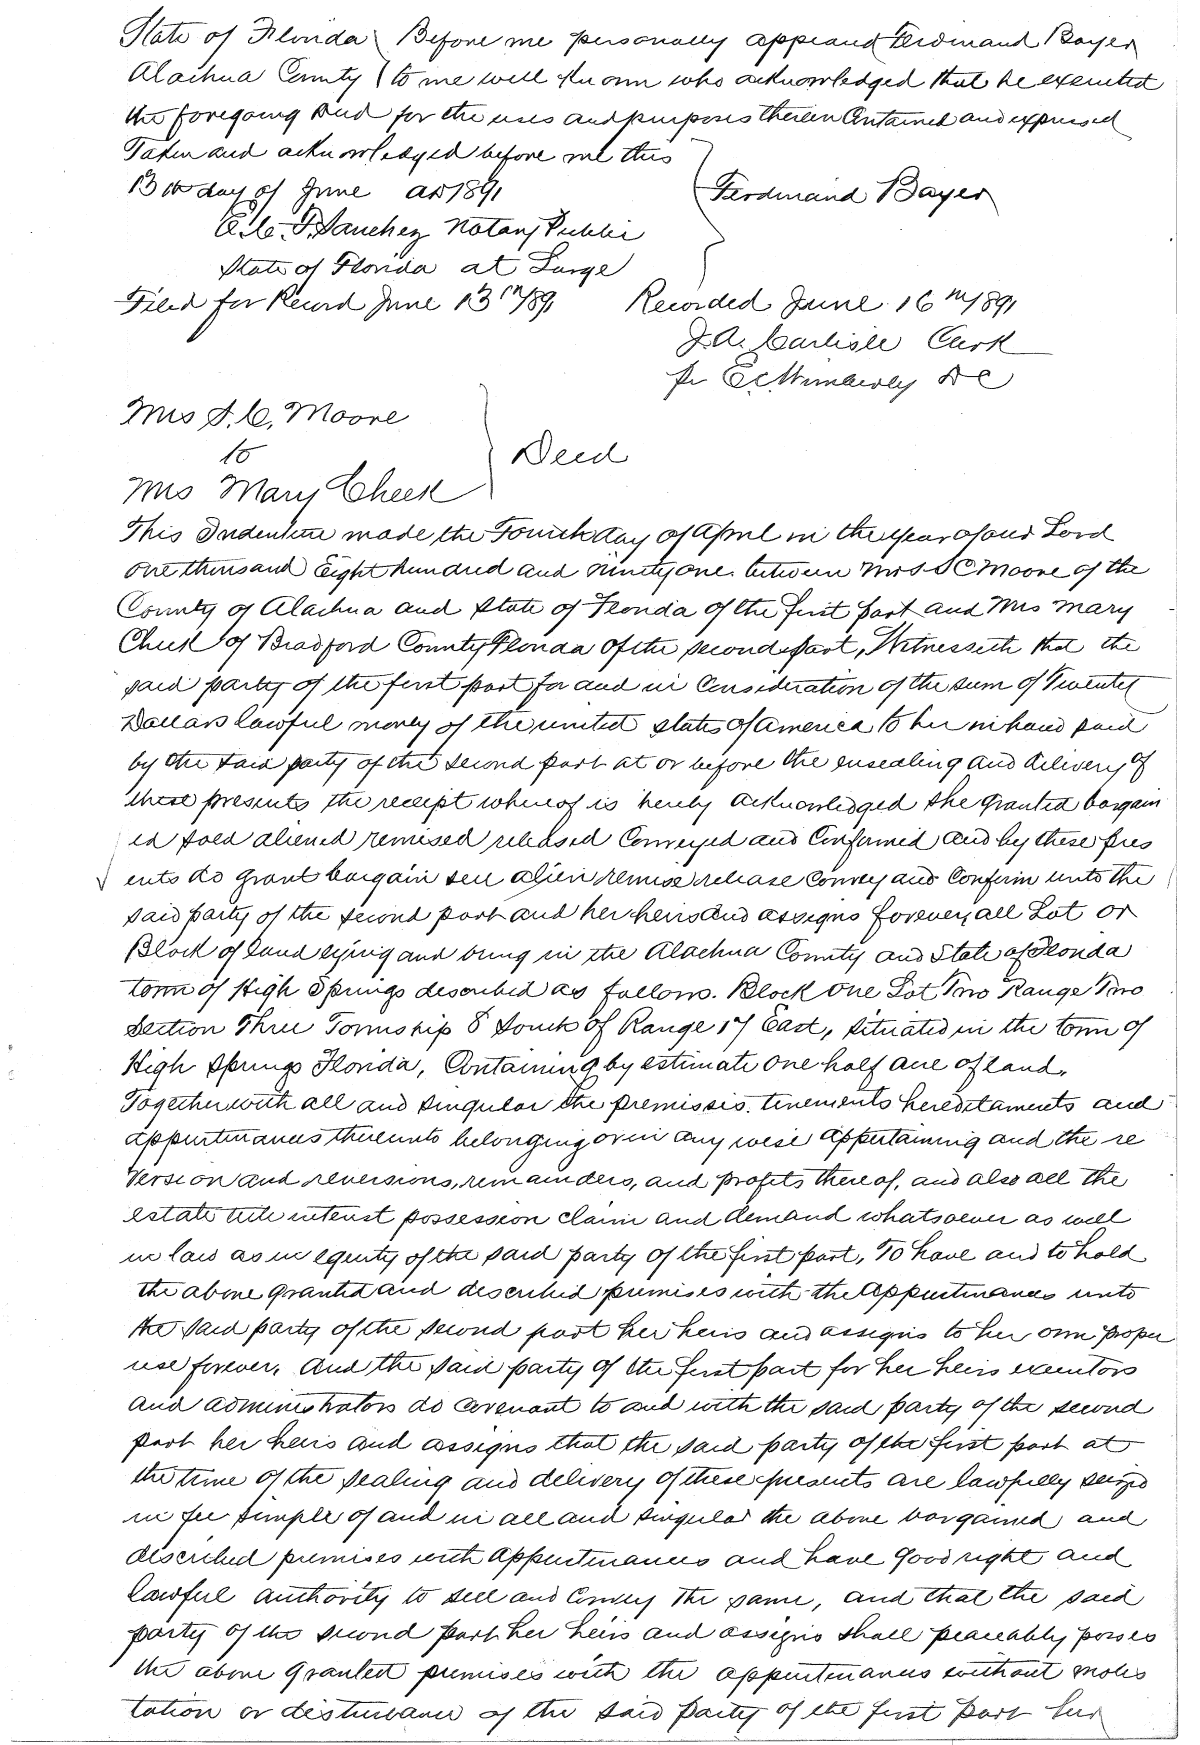 State of Florida Before me personally appeared Ferdinand Bayer
Alachua County to me well known who acknowledged that he executed
the foregoing Deed for the uses and purposes therein Contained and expressed
Taken and acknowledged before me this
13th day of June AD 1891
Ferdinand Bayer
Sanchez Notary Public
State of Florida at Large
Filed for Record June 13th/891
Recorded June 16th/891
J.A. Carlisle Clerk
pr E.C. Wimberly DC
Mrs S.C. Moore
to
Deed
Mrs Mary Cheek
This Indenture made the Fourth day of April in the year of our Lord
one thousand Eight hundred and ninety one between Mrs S C Moore of the
County of Alachua and State of Florida of the first part and Mrs Mary
Cheek of Bradford County Florida of the second part, Witnesseth that the
said party of the first part for and in Consideration of the sum of Twenty
Dollars lawful money of the united states of America to her in hand paid
by the said party of the second part at or before the ensealing and delivery of
these presents the receipt whereof is hereby acknowledged she granted bargain
ed sold aliened remised released Conveyed and Confirmed and by these pres
ents do grant bargain sell alien remise release Convey and Confirm unto the
said party of the second part and her heirs and assigns forever, all Lot or
Block of land lying and being in the Alachua County and State of Florida
town of High Springs described as follows. Block One Lot Two Range Two
Section Three Township 8 South of Range 17 East, situated in the town of
High Springs Florida, Containing by estimate one half acre of land.
Together with all and singular the premises. tenements hereditaments and
appurtenances thereunto belonging or in any wise appertaining and the re
version and reversions, remainders, and profits thereof, and also all the
estate title interest possession claim and demand whatsoever as well
in law as in equity of the said party of the first part, To have and to hold
the above granted and described premises with the Appurtenances unto
the said party of the second part her heirs and assigns to her own proper
use forever. And the said party of the first part for her heirs executors
and administrators do covenant to and with the said party of the second
part her heirs and assigns that the said party of the first part at
the time of the sealing and delivery of these presents are lawfully seized
in fee simple of and in all and singular the above bargained and
described premises with appurtenances and have good right and
lawful authority to sell and Convey the same, and that the said
party of the second part her heirs and assigns shall peaceably posses
the above granted premises with the appurtenances without moles
tation or disturbance of the said party of the first part her